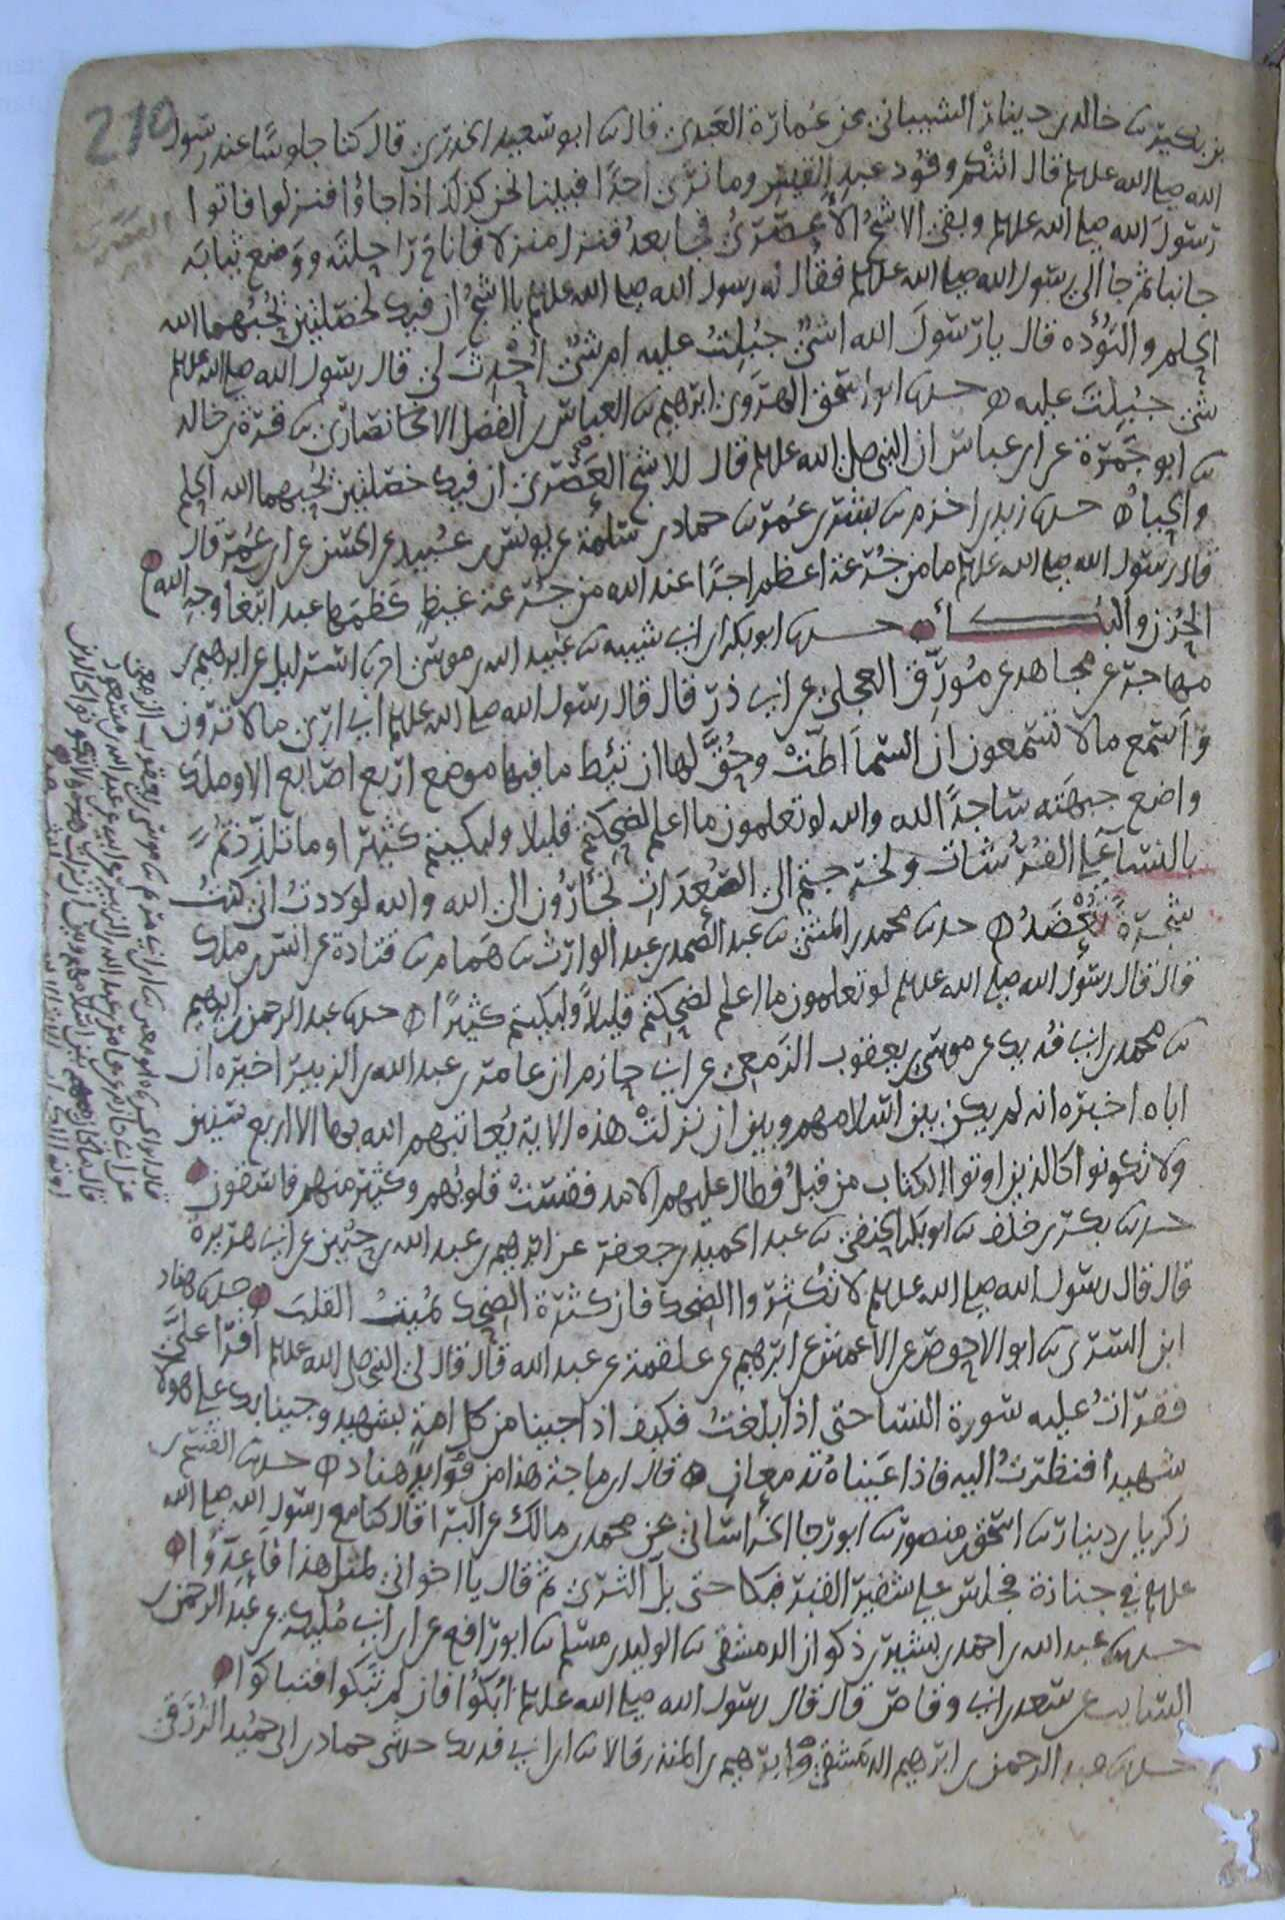 210
بن بكير ثنا خالد بن دينار الشيباني عن عمارة العبدي قال ثنا ابو سعيد الخدري قال كنا جلوسًا عند رسول
الله صلى الله عليه وسلم قال اتتكم وفود عبد القيس وما نرى احدًا فبينا نحن كذلك اذ جاؤا فنزلوا فاتوا
رسول الله صلى الله عليه وسلم وبقي الاشج العصري فجا بعد فنزل منزلا فاناخ راحلته ووضع ثيابه
جانبا ثم جا الى رسول الله صلى الله عليه وسلم فقال له رسول الله صلى الله عليه وسلم يا اشج ان فيك لخصلتين يحبهما الله
الحلم والتؤده قال يا رسول الله اشئ جبلت عليه ام شئ احدث لي قال رسول الله صلى الله عليه وسلم
شئ جبلت عليه ه حدثنا ابو اسحق الهروي ابرهيم ثنا العباس بن الفضل الانصاري ثنا قرة بن خالد
ثنا ابو جمرة عن ابن عباس ان النبي صلى الله عليه وسلم قال للاشج العصري ان فيك خصلتين يحبهما الله الحلم
والحيا ه حدثنا زيد بن اخزم ثنا بشر بن عمر ثنا حماد بن سلمة عن يونس بن عبيد عن الحسن عن ابن عمر قال
قال رسول الله صلى الله عليه وسلم ما من جرعة اعظم اجرًا عند الله من جرعة غيظ كظمها عبد ابتغا وجه الله
الحزن والبكا حدثنا ابو بكر بن ابي شيبه ثنا عبيد الله بن موسى انا اسرائيل عن ابرهيم بن
مهاجر عن مجاهد عن مورق العجلي عن ابي ذر قال قال رسول الله صلى الله عليه وسلم اني ارى ما لا ترون
واسمع ما لا تسمعون ان السما اطت وحق لها ان تئط ما فيها موضع اربع اصابع الا وملك
واضع جبهته ساجدًا لله والله لو تعلمون ما اعلم لضحكتم قليلا ولبكيتم كثيرا وما تلذذتم
بالنسا على الفرشات ولخرجتم الى الصعدات تجأرون الى الله والله لوددت اني كنت
شجرة تعضد ه حدثنا محمد بن المثنى ثنا عبد الصمد بن عبد الوارث ثنا همام ثنا قتادة عن انس بن ملك
قال قال رسول الله صلى الله عليه وسلم لو تعلمون ما اعلم لضحكتم قليلاً ولبكيتم كثيرًا ه حدثنا عبد الرحمن بن ابرهيم
ثنا محمد بن ابي فديك عن موسى بن يعقوب الزمعي عن ابي حازم ان عامر بن عبد الله بن الزبير اخبره ان
اباه اخبره انه لم يكن بين اسلامهم وبين ان نزلت هذه الاية يعاتبهم الله بها الا اربع سنين
ولا تكونوا كالذين اوتوا الكتاب من قبل فطال عليهم الامد فقست قلوبهم وكثير منهم فاسقون
حدثنا بكر بن خلف ثنا ابو بكر الحنفي ثنا عبد الحميد بن جعفر عن ابرهيم بن عبد الله بن حنين عن ابي هريرة
قال قال رسول الله صلى الله عليه وسلم لا تكثروا الضحك فان كثرة الضحك تميت القلب حدثنا هناد
ابن السري ثنا ابو الاحوص عن الاعمش عن ابرهيم عن علقمة عن عبد الله قال قال لي النبي صلى الله عليه وسلم اقرا علي
فقرات عليه سورة النسا حتى اذا بلغت فكيف اذا جينا من كل امة بشهيد وجينا بك على هولا
شهيدا فنظرت اليه فاذا عيناه تدمعان ه قال ابن ماجة هذا من فوايد هناد ه حدثنا القسم بن
زكريا بن دينار ثنا اسحق بن منصور ثنا ابو رجا الخراساني عن محمد بن مالك عن البرا قال كنا مع رسول الله صلى الله
عليه وسلم في جنازة فجلس على شفير القبر فبكا حتى بل الثرى ثم قال يا اخواني لمثل هذا فاعدوا ه
حدثنا عبد الله بن احمد بن بشير بن ذكوان الدمشقي ثنا الوليد بن مسلم ثنا ابو رافع عن ابن ابي مليكة عن عبد الرحمن بن
السايب عن سعد بن ابي وقاص قال قال رسول الله صلى الله عليه وسلم ابكوا فان لم تبكوا فتباكوا
حدثنا عبد الرحمن بن ابرهيم الدمشقي وابرهيم بن المنذر قالا ثنا ابن ابي فديك حدثني حماد بن ابي حميد الزرقي